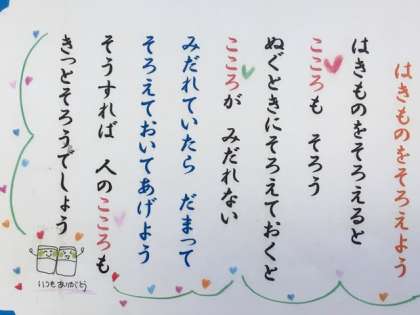 はきものをそろえよう
はきものをそろえると
こころも そろう
ぬぐときにそろえておくと
こころが みだれない
みだれていたら だまって
そろえておいてあげよう
そうすれば 人のこころも
きっとそろうでしょう
いつもありがとう